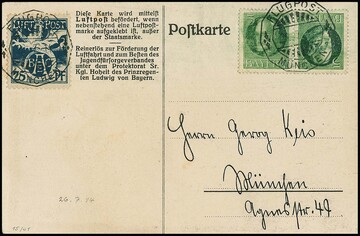 FLUGPOST
25 Pf.
Diese Karte wird mittelst
Luftpost befördert, wenn
nebenstehend eine Luftpost-
marke aufgeklebt ist, außer
der Staatsmarke.
Reinerlös zur Förderung der
Luftfahrt und zum Besten des
Jugendfürsorgeverbandes
unter dem Protektorat Sr.
Kgl. Hoheit des Prinzregen-
ten Ludwig von Bayern.
Postkarte
FLUGPOST
MÜNCH
BAYERN
Herrn Georg
München
Agnesstr. 49